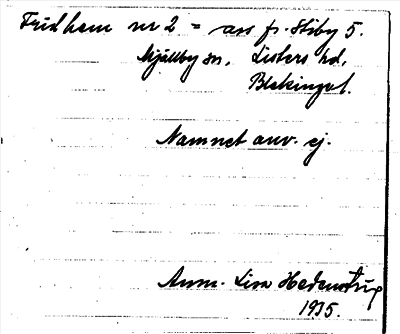 Fridhem nr 2 = ass fr. Stiby 5.
Mjällby sn, Listers hd,
Blekinge l.
Namnet anv. ej.
Ann-Lisa Hedenstrup
1935.